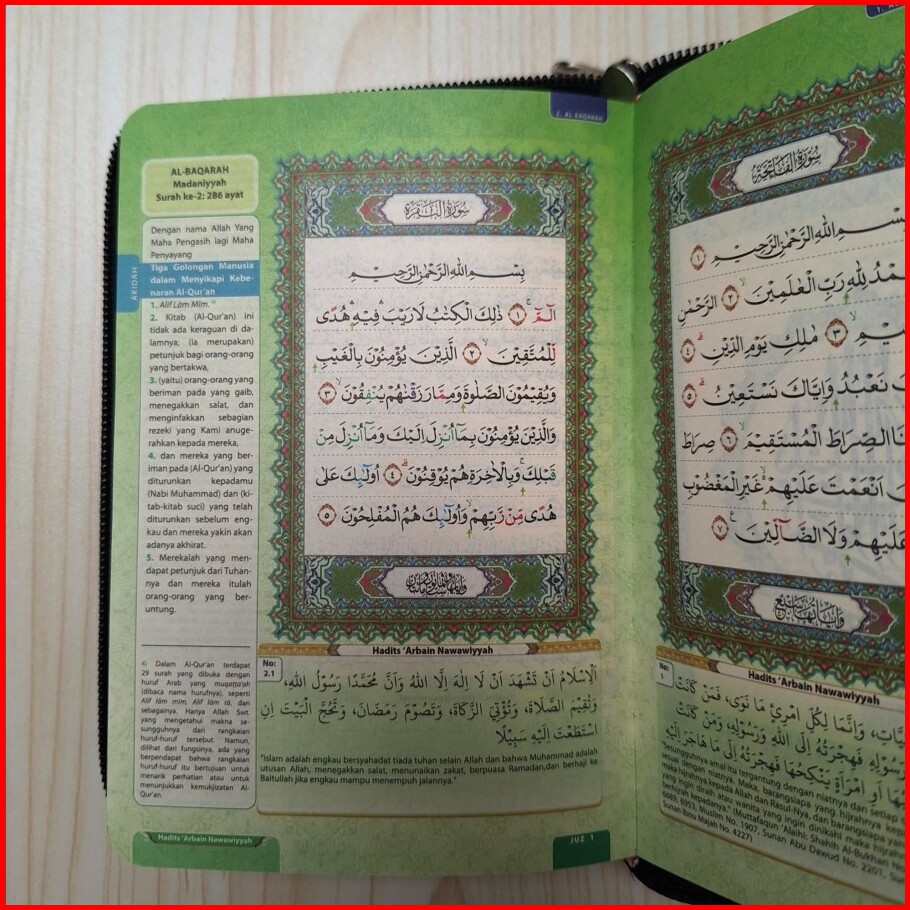 2. AL-BAQARAH
AL-BAQARAH
Madaniyyah
Surah ke-2: 286 ayat
Dengan nama Allah Yang
Maha Pengasih lagi Maha
Penyayang
AKIDAH
Tiga Golongan Manusia
dalam Menyikapi Kebe-
naran Al-Qur'an
1. Alif Lām Mīm. 4)
2. Kitab (Al-Qur'an) ini
tidak ada keraguan di da-
lamnya; (ia merupakan)
petunjuk bagi orang-orang
yang bertakwa,
3. (yaitu) orang-orang yang
beriman pada yang gaib,
menegakkan salat, dan
menginfakkan sebagian
rezeki yang Kami anuge-
rahkan kepada mereka,
4. dan mereka yang ber-
iman pada (Al-Qur'an) yang
diturunkan kepadamu
(Nabi Muhammad) dan (ki-
tab-kitab suci) yang telah
diturunkan sebelum eng-
kau dan mereka yakin akan
adanya akhirat.
5. Merekalah yang men-
dapat petunjuk dari Tuhan-
nya dan mereka itulah
orang-orang yang ber-
untung.
4) Dalam Al-Qur'an terdapat
29 surah yang dibuka dengan
huruf Arab yang muqaṭṭa'ah
(dibaca nama hurufnya), seperti
Alif lām mīm, Alif lām rā, dan
sebagainya. Hanya Allah Swt.
yang mengetahui makna se-
sungguhnya dari rangkaian
huruf-huruf tersebut. Namun,
dilihat dari fungsinya, ada yang
berpendapat bahwa rangkaian
huruf-huruf itu bertujuan untuk
menarik perhatian atau untuk
menunjukkan kemukjizatan Al-
Qur'an.
سُوْرَةُ الْبَقَرَةِ
بِسْمِ اللّٰهِ الرَّحْمٰنِ الرَّحِيْمِ
الۤمّۤ ۚ ١ ذٰلِكَ الْكِتٰبُ لَا رَيْبَ ۛ فِيْهِ ۛ هُدًى
لِّلْمُتَّقِيْنَ ۙ ٢ الَّذِيْنَ يُؤْمِنُوْنَ بِالْغَيْبِ
وَيُقِيْمُوْنَ الصَّلٰوةَ وَمِمَّا رَزَقْنٰهُمْ يُنْفِقُوْنَ ۙ ٣
وَالَّذِيْنَ يُؤْمِنُوْنَ بِمَآ اُنْزِلَ اِلَيْكَ وَمَآ اُنْزِلَ مِنْ
قَبْلِكَ ۚ وَبِالْاٰخِرَةِ هُمْ يُوْقِنُوْنَ ۗ ٤ اُولٰۤىِٕكَ عَلٰى
هُدًى مِّنْ رَّبِّهِمْ ۙ وَاُولٰۤىِٕكَ هُمُ الْمُفْلِحُوْنَ ٥
Hadits 'Arbain Nawawiyyah
No:
2.1
اَلْإِسْلَامُ اَنْ تَشْهَدَ اَنْ لَا اِلٰهَ اِلَّا اللهُ وَاَنَّ مُحَمَّدًا رَسُوْلُ اللهِ،
وَتُقِيْمَ الصَّلَاةَ، وَتُؤْتِيَ الزَّكَاةَ، وَتَصُوْمَ رَمَضَانَ، وَتَحُجَّ الْبَيْتَ اِنِ
اسْتَطَعْتَ اِلَيْهِ سَبِيْلًا
"Islam adalah engkau bersyahadat tiada tuhan selain Allah dan bahwa Muhammad adalah
utusan Allah, menegakkan salat, menunaikan zakat, berpuasa Ramadan,dan berhaji ke
Baitullah jika engkau mampu menempuh jalannya."
Hadits 'Arbain Nawawiyyah
JUZ 1
سُوْرَةُ الْفَاتِحَةِ
بِسْمِ اللّٰهِ الرَّحْمٰنِ الرَّحِيْمِ ١
لِلّٰهِ رَبِّ الْعٰلَمِيْنَ ۙ ٢ الرَّحْمٰنِ
ۙ ٣ مٰلِكِ يَوْمِ الدِّيْنِ ۗ ٤
نَعْبُدُ وَاِيَّاكَ نَسْتَعِيْنُ ۗ ٥
الصِّرَاطَ الْمُسْتَقِيْمَ ۙ ٦ صِرَاطَ
اَنْعَمْتَ عَلَيْهِمْ ەۙ غَيْرِ الْمَغْضُوْبِ
عَلَيْهِمْ وَلَا الضَّاۤلِّيْنَ ࣖ ٧
وَاٰيَاتُهَا سَبْعٌ
Hadits 'Arbain Nawawiyyah
No:
1
وَاِنَّمَا لِكُلِّ امْرِئٍ مَا نَوَى، فَمَنْ كَانَتْ
فَهِجْرَتُهُ اِلَى اللهِ وَرَسُوْلِهِ، وَمَنْ كَانَتْ
اَوِ امْرَأَةٍ يَنْكِحُهَا فَهِجْرَتُهُ اِلَى مَا هَاجَرَ اِلَيْهِ
"Sesungguhnya amal itu tergantung dengan niatnya dan setiap
sesuai dengan niatnya. Maka, barangsiapa yang hijrahnya
maka hijrahnya kepada Allah dan Rasul-Nya, dan barangsiapa
yang ingin diraih atau wanita yang ingin dinikahi maka
berhijrah kepadanya." (Muttafaqun 'Alaihi: Shahih Al-Bukhari No.
6689, 6953, Muslim No. 1907, Sunan Abu Dawud No. 2201, Sunan
Ibnu Majah No. 4227)